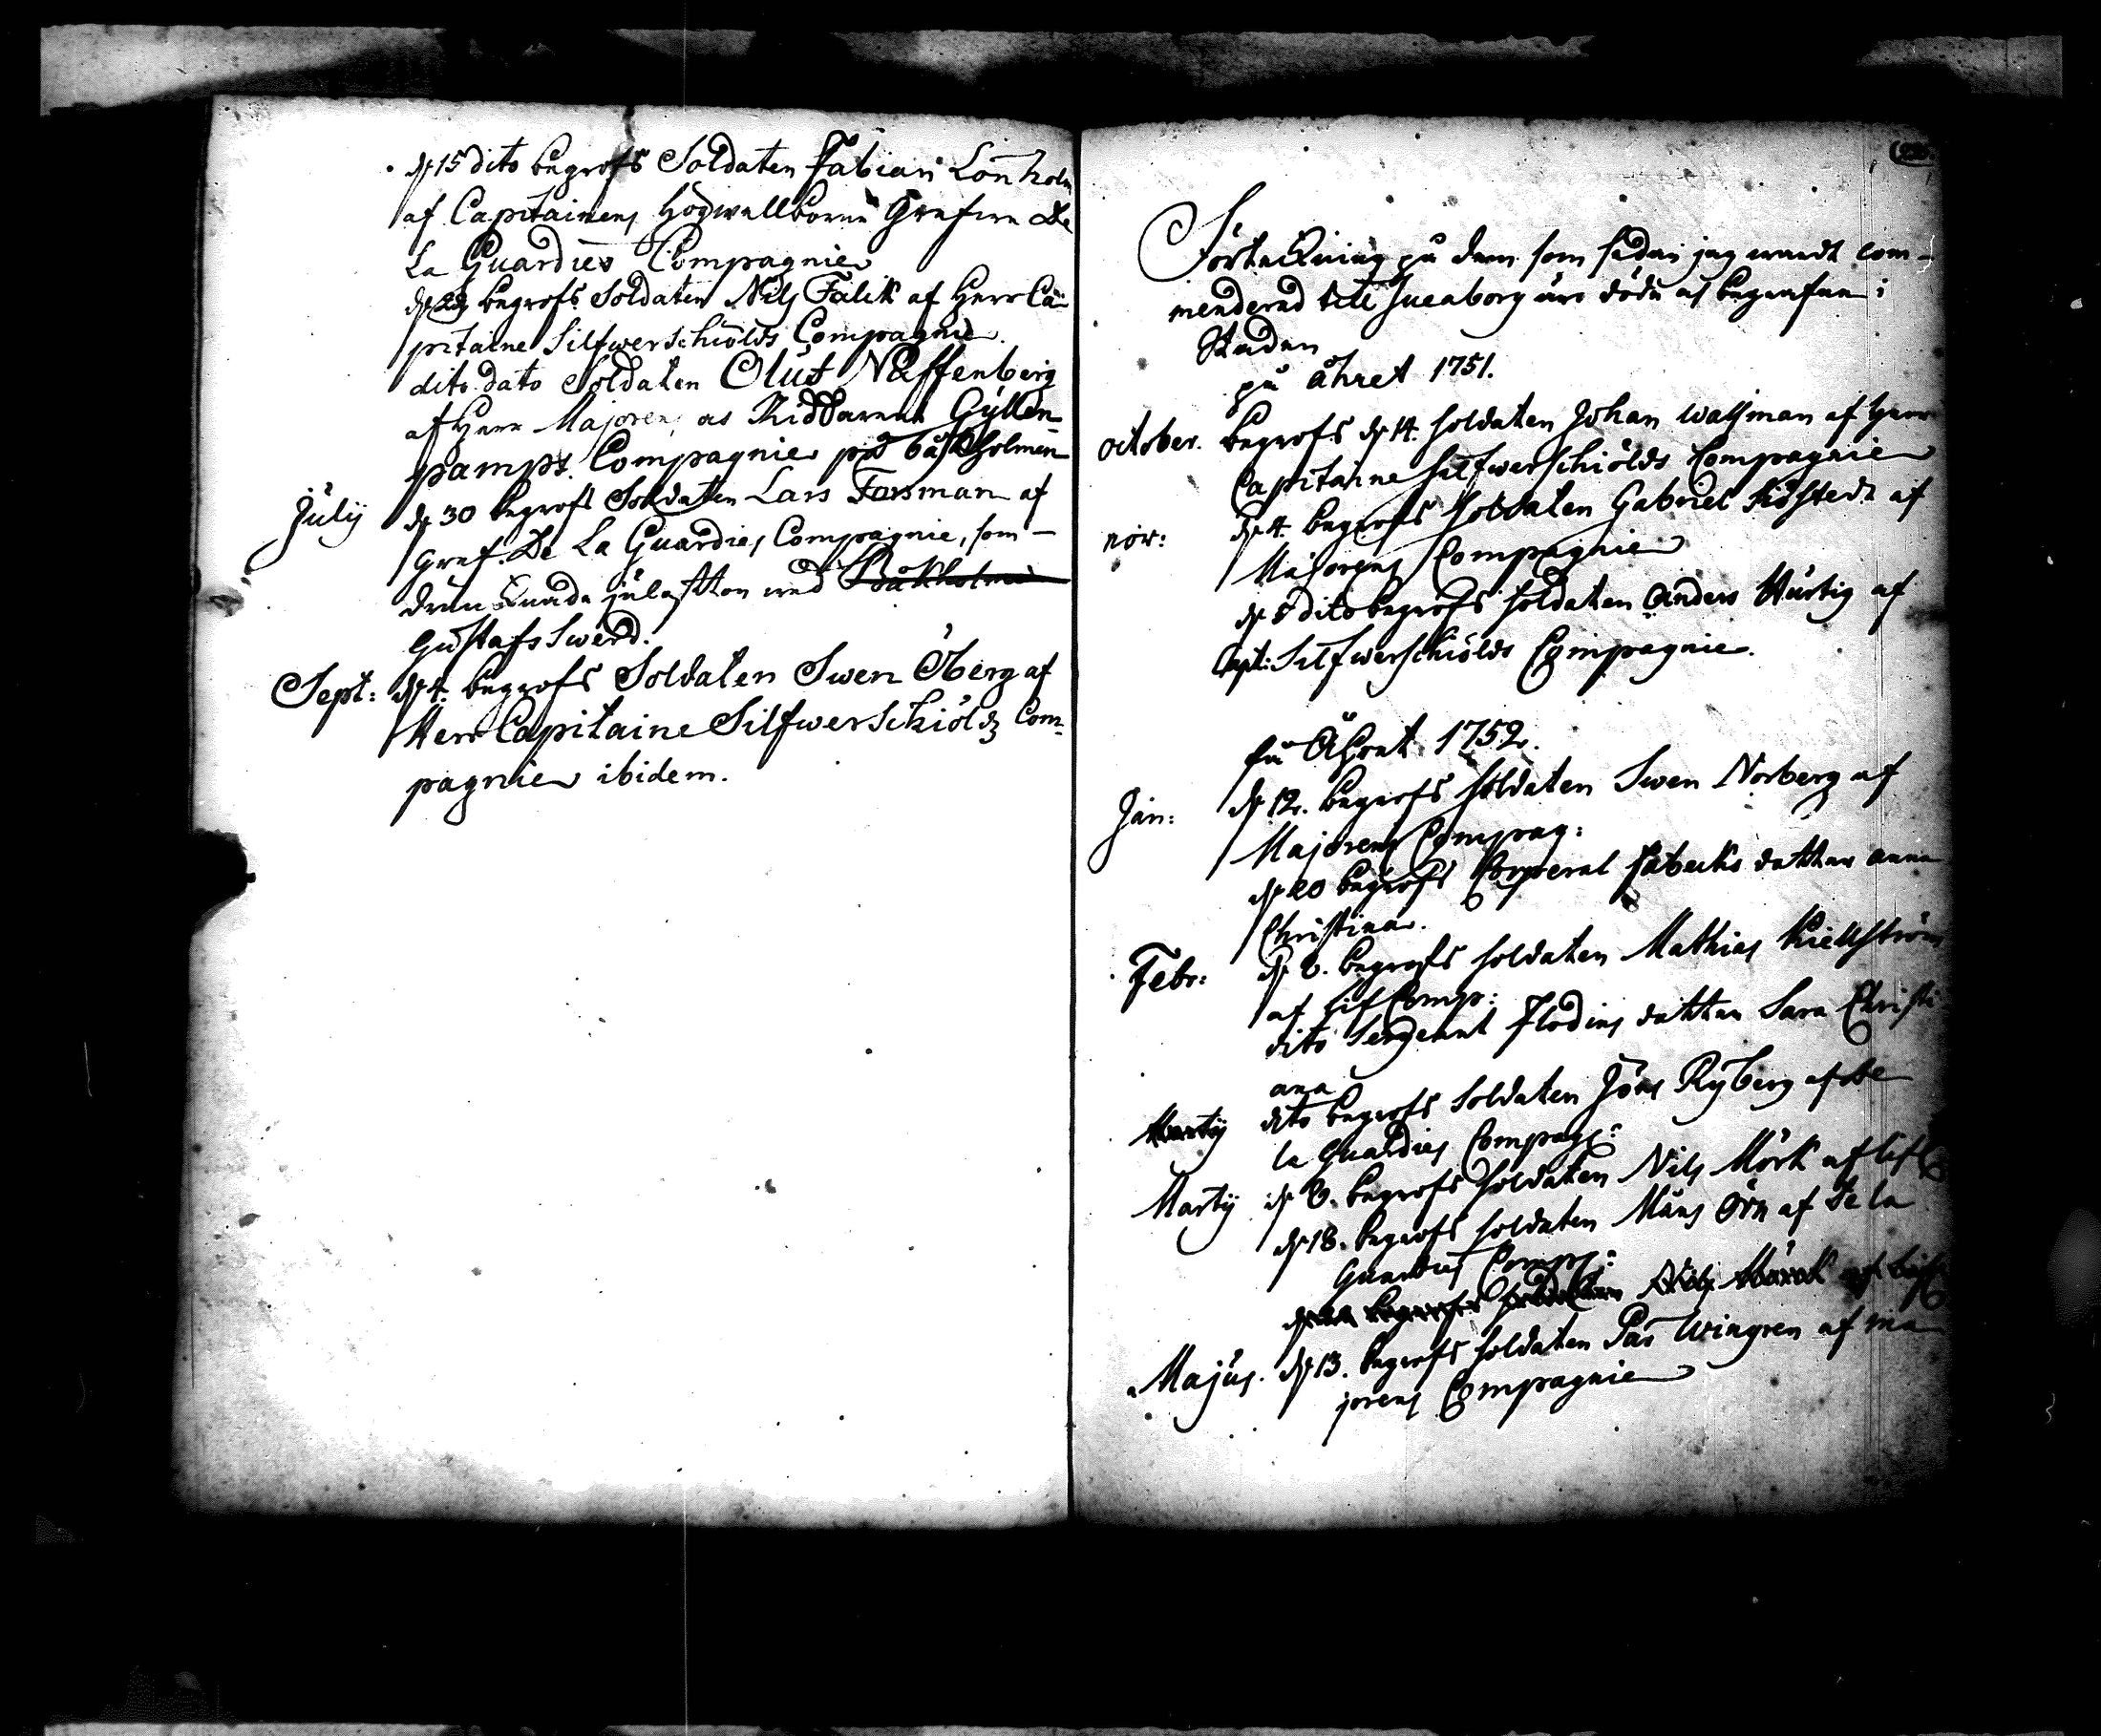 d 15 dito begrofs Soldaten Fabian Lönholm
af Capitainens Högwelborne Grefwe De
La Guardies Compagnie
d 22 begrofs Soldaten Nils Falck af Herr Ca-
pitaine Silfwerschiölds Compagnie.
dito dato Soldaten Oluf Näffenberg
af Herr Majoren och Riddarens Gyllen-
pamps Compagnie på Bakholmen
Julij d 30 begrofs Soldaten Lars Forsman af
Gref. De La Guardies Compagnie, som
drunknade med Bakholmen
Gustafs Swerd.
Sept: d 4. begrofs Soldaten Swen Öberg af
Herr Capitaine Silfwerschiöldz Com-
pagnie ibidem.
Förteckning på dem som sedan jag wardt com-
menderad till Sueaborg äro döde och begrafne i
Staden
på åhret 1751.
October. begrofs d 14. soldaten Johan Walsman af Herr
Capitaine Silfwerschiölds Compagnie
nov: d 4. begrofs soldaten Gabriel af
Majorens Compagnie
d 5 dito begrofs soldaten Anders Hurtig af
Capt: Silfwerschiölds Compagnie.
på Åhret 1752.
Jan: d 12. begrofs soldaten Swen Norberg af
Majorens Compag:
d 20 begrofs Corporal dotter Anna
Christina.
Febr: d 8. begrofs soldaten Mathias Kiellström
af Lif Comp:
dito Sergeant Flodins dotter Sara Christi
ana
Martij dito begrofs Soldaten Jöns Ryberg af De
la Guardies Compag:
Martij d 8. begrofs soldaten Nils Mörk af Lif C
d 18. begrofs soldaten Måns Örn af De la
Guardies Comp:
begrofs soldaten Nils Mörck af Lif C
Majus. d 13. begrofs soldaten Pär Wingren af ma
jorens Compagnie